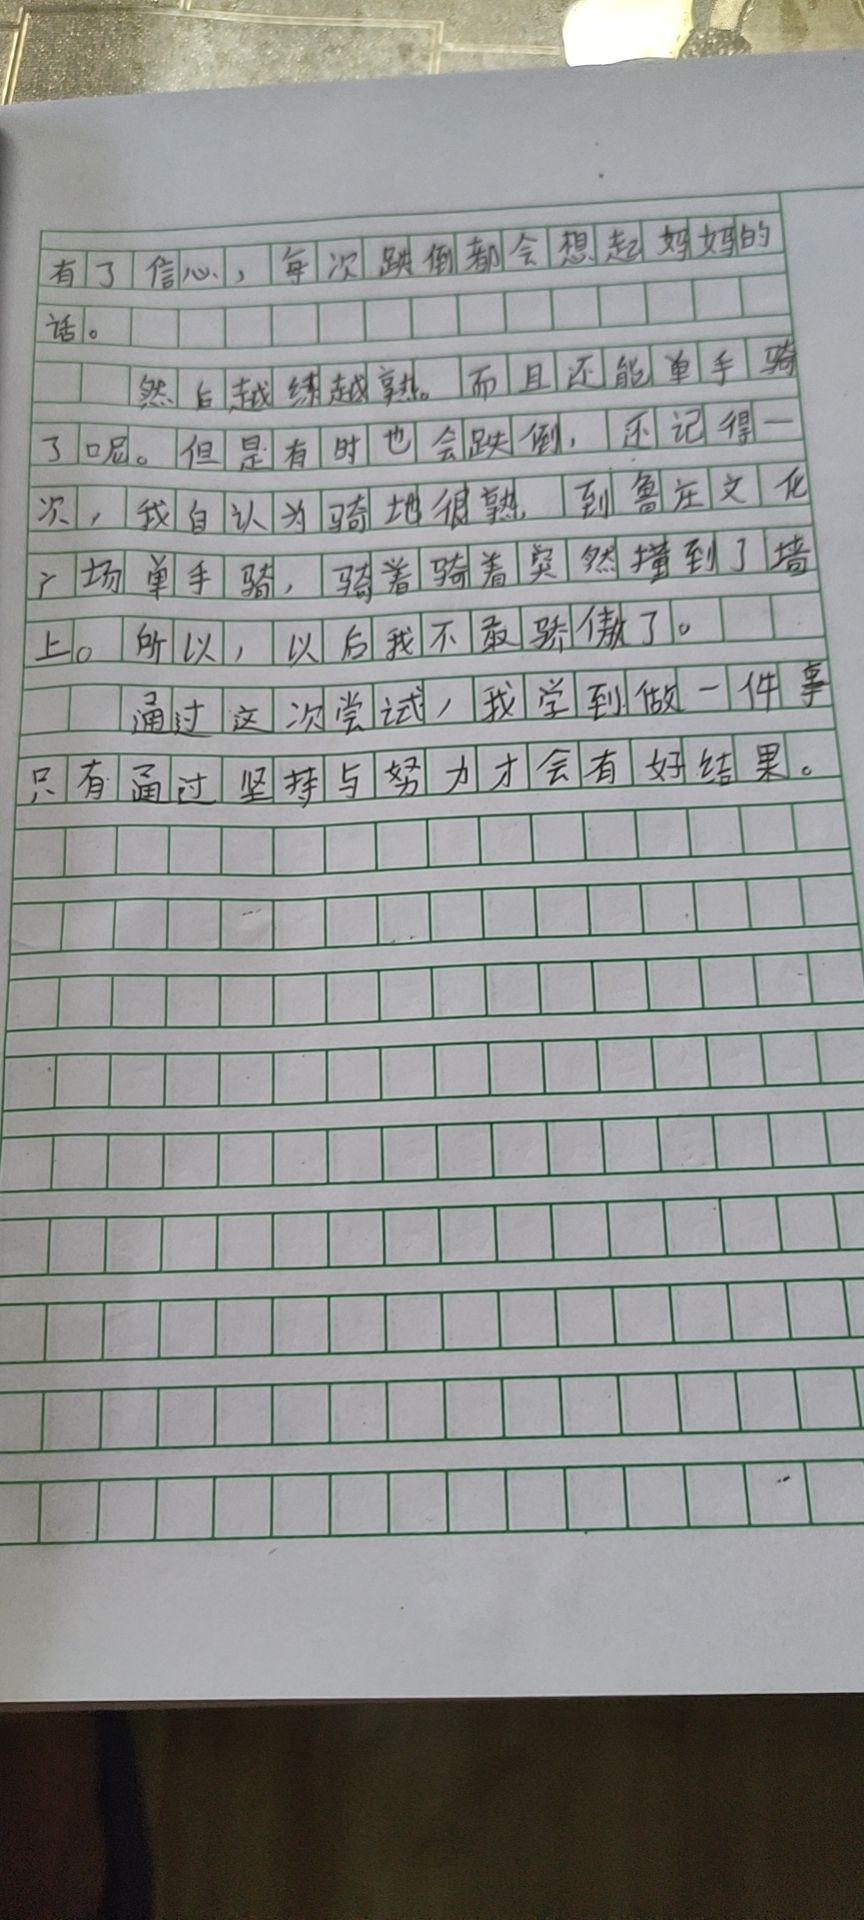 有了信心，每次跌倒都会想起妈妈的
话。
然后越练越熟。而且还能单手骑
了呢。但是有时也会跌倒，还记得一
次，我自认为骑地很熟，到鲁庄文化
广场单手骑，骑着骑着突然撞到了墙
上。所以，以后我不敢骄傲了。
通过这次尝试，我学到做一件事
只有通过坚持与努力才会有好结果。